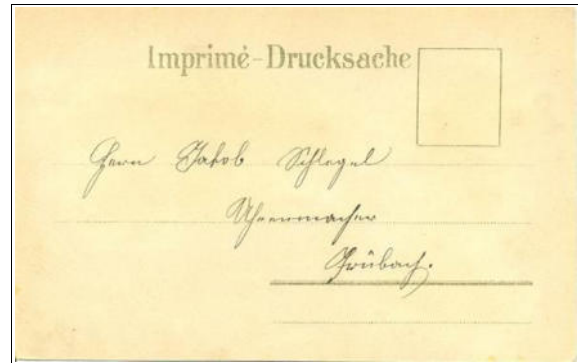 Imprimé-Drucksache
Herrn Jakob Schlegel
Uhrenmacher
Trübach.